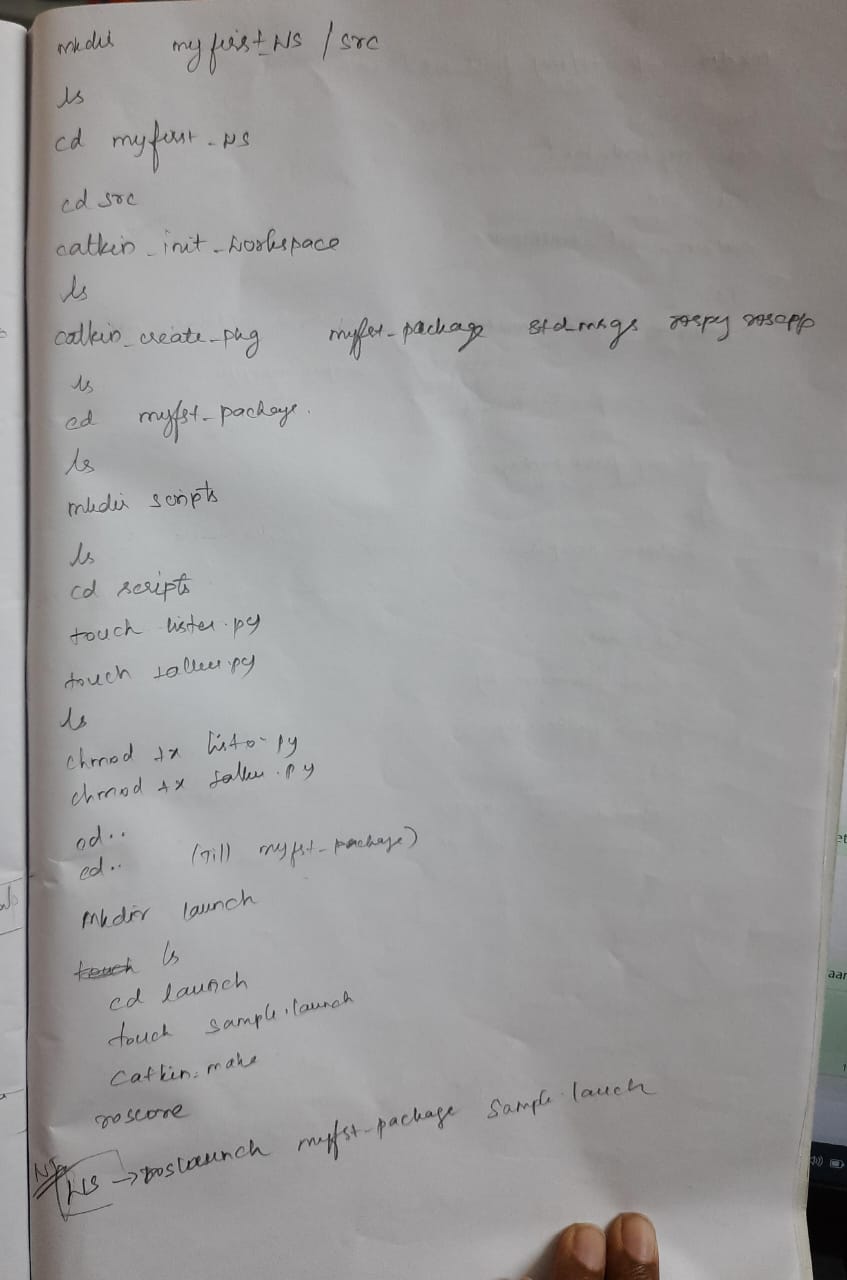 mkdir myfirst_WS / src
ls
cd myfirst_WS
cd src
catkin_init_workspace
ls
catkin_create_pkg myfst_package std_msgs rospy roscpp
ls
cd myfst_package.
ls
mkdir scripts
ls
cd scripts
touch lister.py
touch talker.py
ls
chmod +x listo.py
chmod +x talker.py
cd..
cd.. (Till myfst_package)
mkdir launch
touch ls
cd launch
touch sample.launch
catkin_make
roscore
WS → roslaunch myfst_package sample.lauch